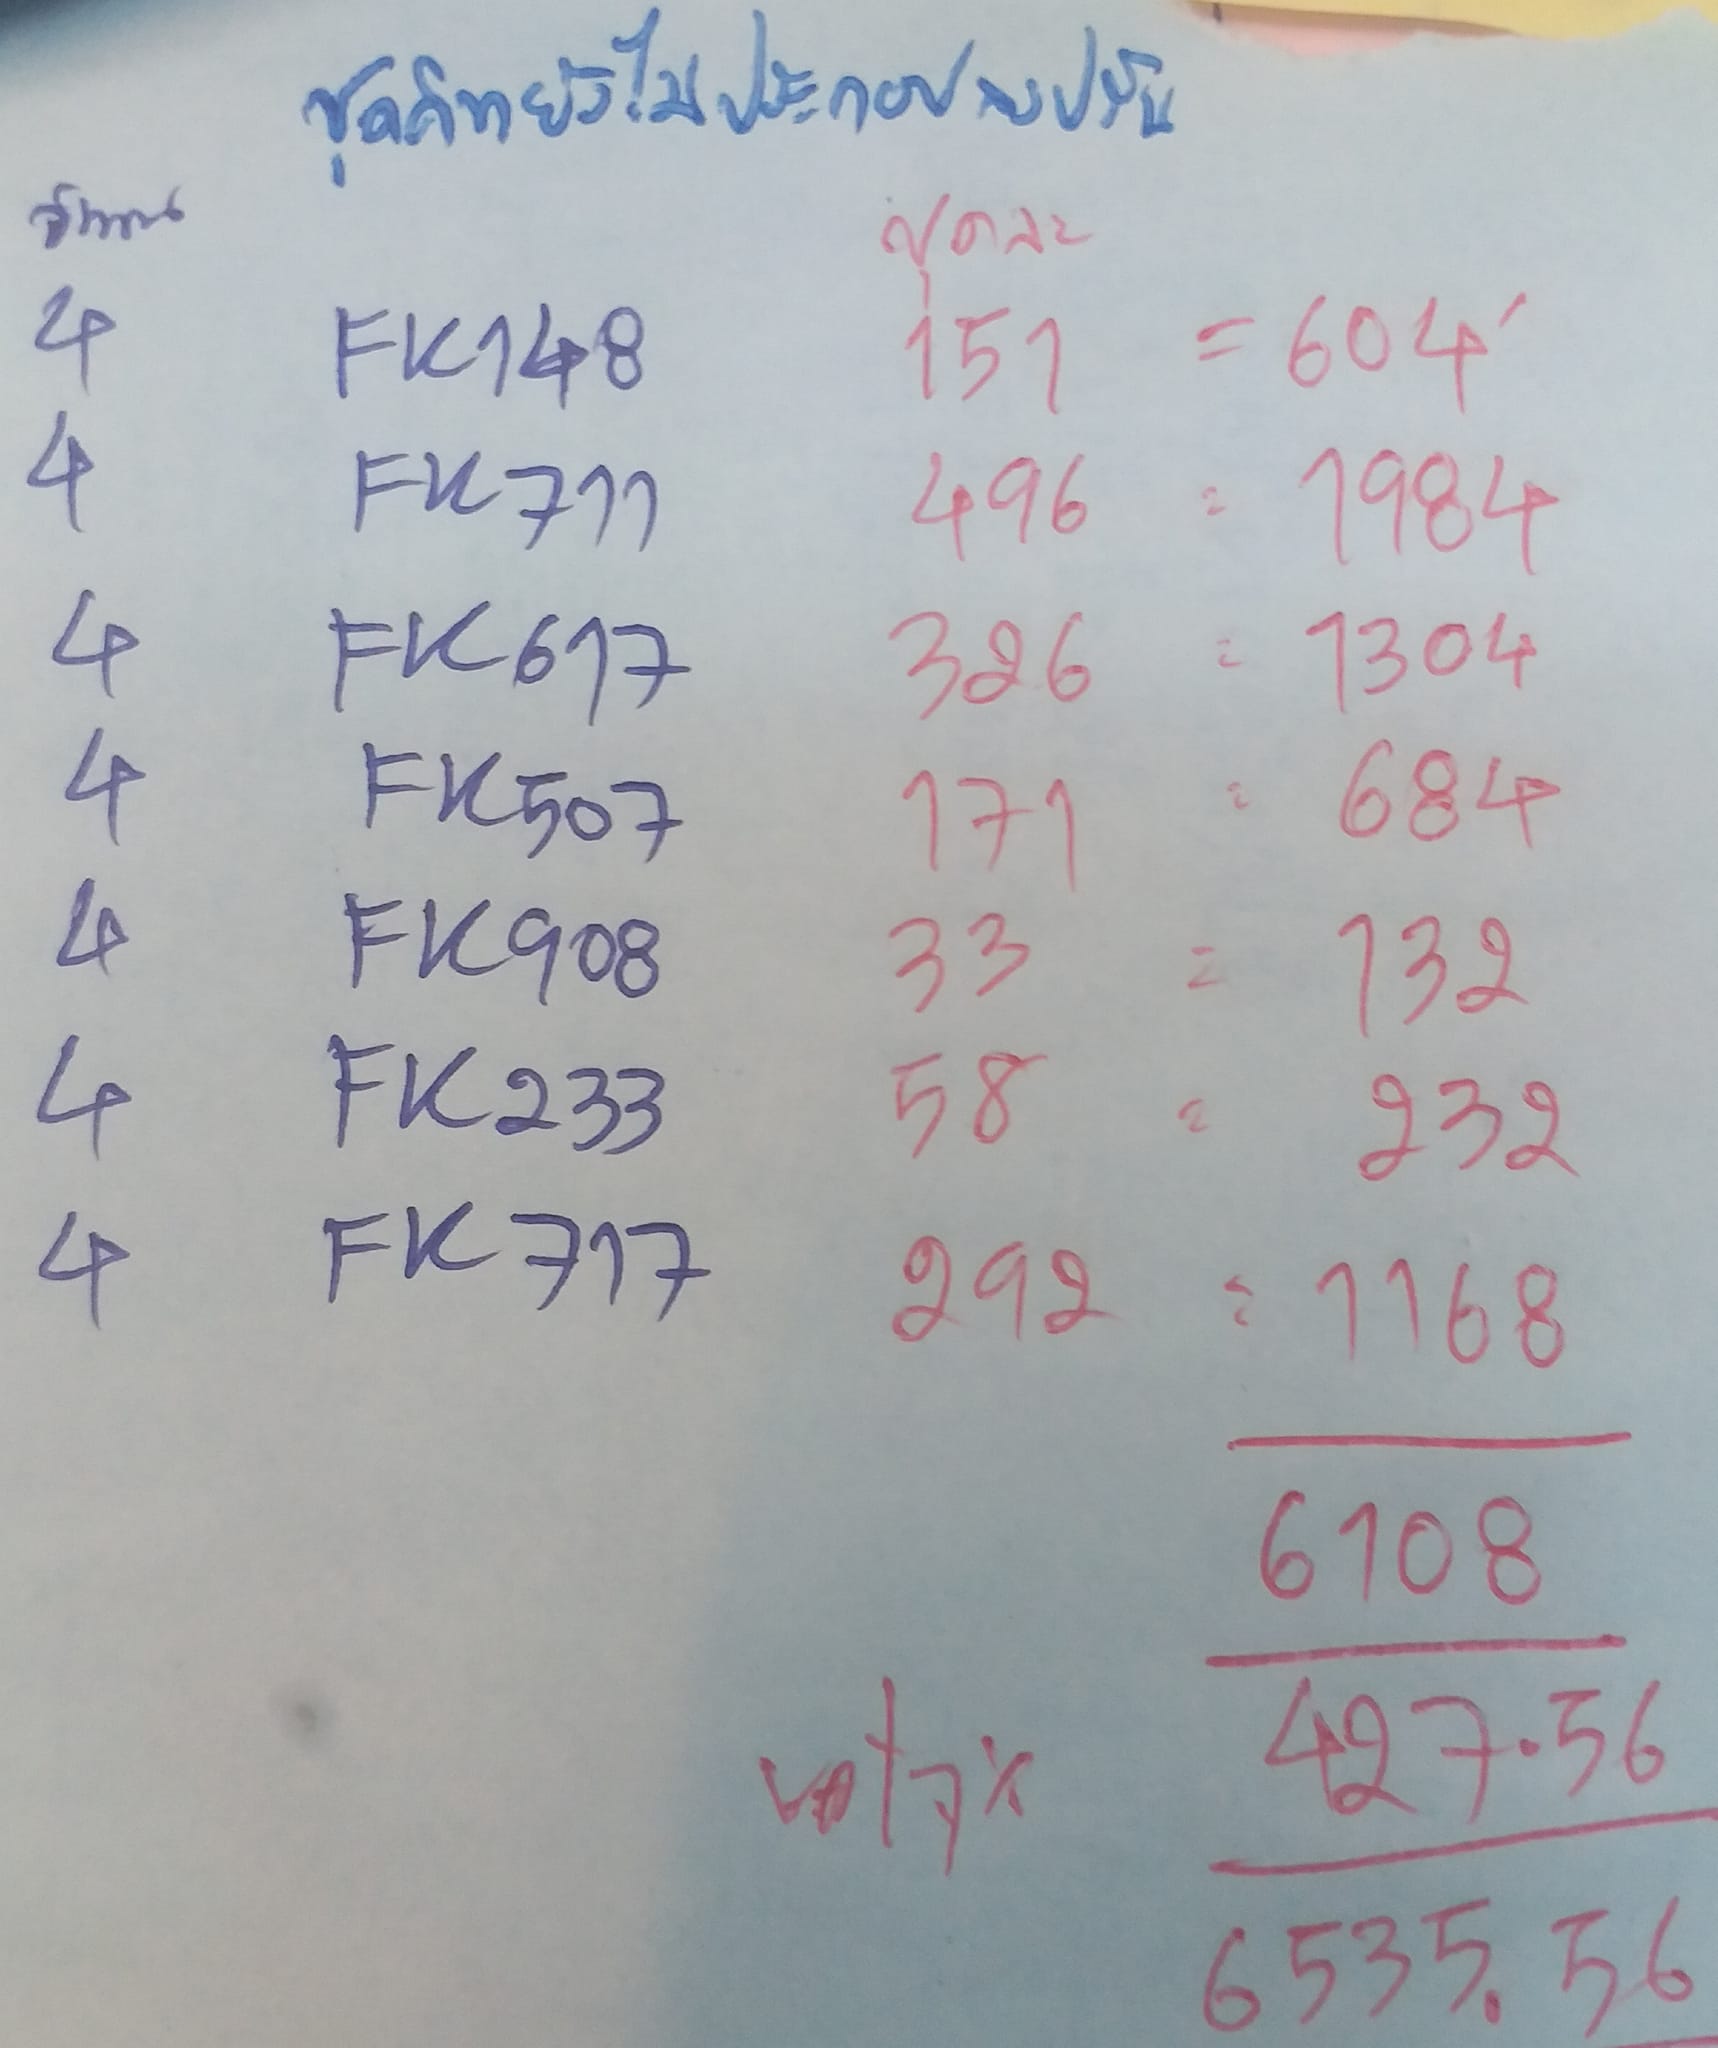 ชุดคิทยังไม่ประกอบลงปริ้น
จำนวน ชุดละ
4 FK148 151 = 604
4 FK711 496 = 1984
4 FK617 326 = 1304
4 FK507 171 = 684
4 FK908 33 = 132
4 FK233 58 = 232
4 FK717 292 = 1168
6108
7% 427.56
6535.56